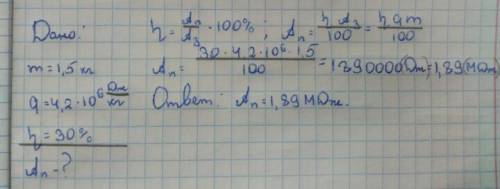 Дано:
m = 1,5 кг
q = 4,2·10⁶ Дж/кг
η = 30%
Aп - ?
η = Aп/Aз · 100% ; Aп = η Aз/100 = η q m/100
Aп = 30 · 4,2 · 10⁶ · 1,5/100 = 1890000 (Дж) = 1,89 (МДж)
Ответ: Aп = 1,89 МДж.